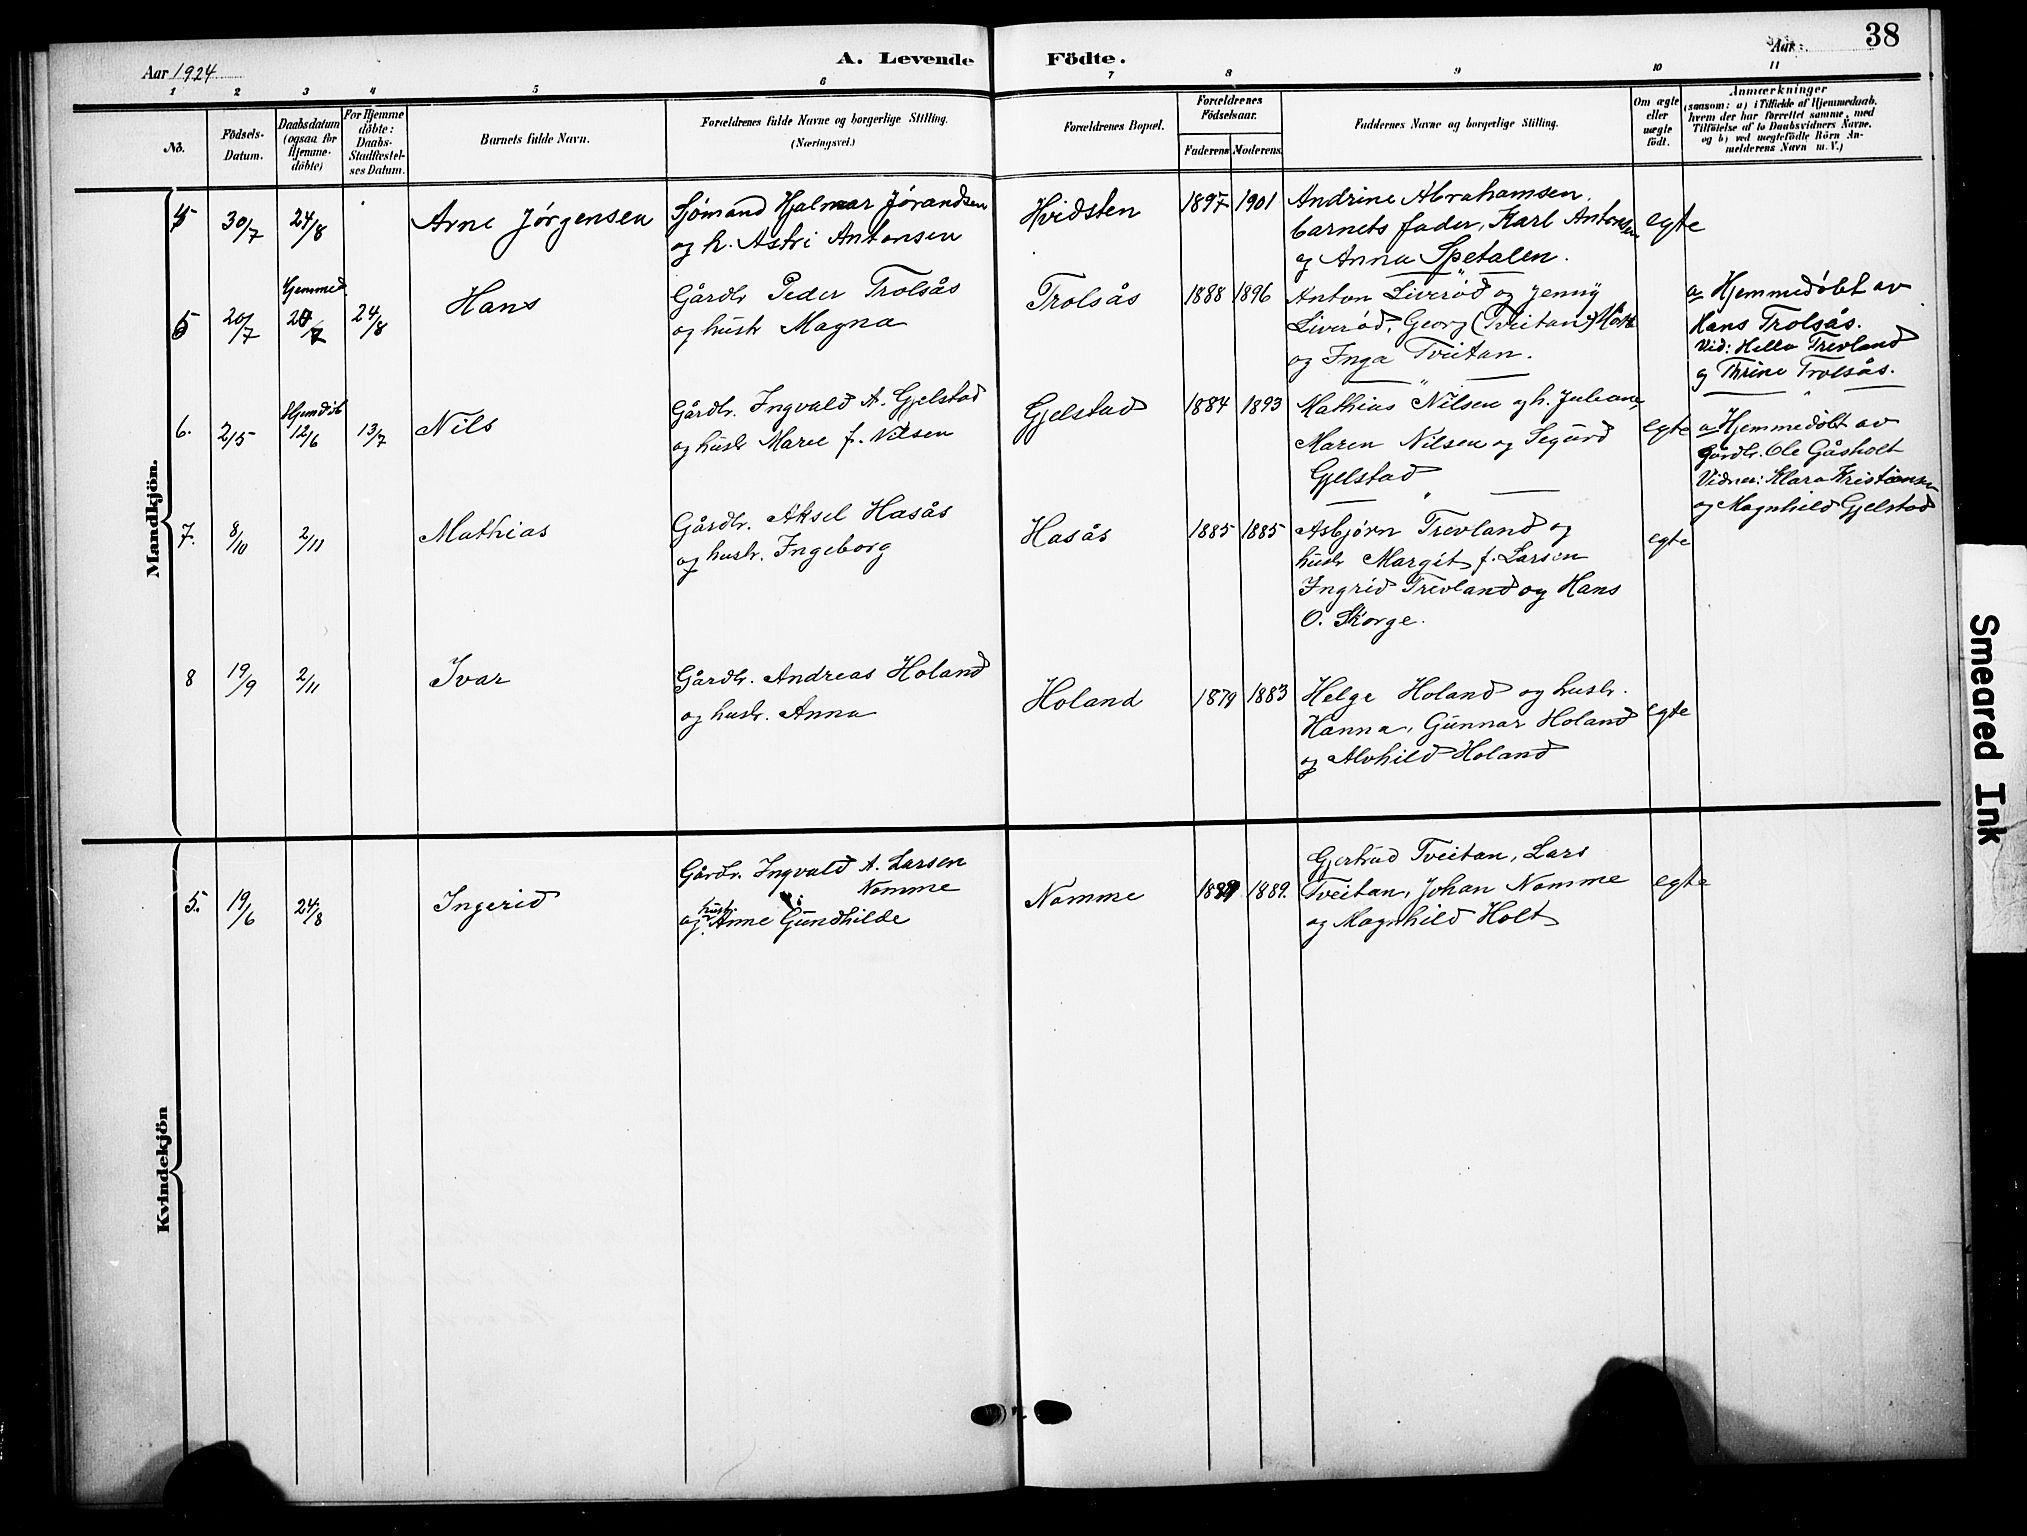 38
Aar 1924
A. Levende Födte.
Aar
1 2 3 4 5 6 7 8 9 10 11
No.
Födsels-Datum.
Daabsdatum (ogsaa for Hjemme-döbte)
For Hjemme döbte: Daabs-Stadfæstel-ses Datum.
Barnets fulde Navn.
Forældrenes fulde Navne og borgerlige Stilling.
(Næringsvei.)
Forældrenes Bopæl.
Forældrenes Födselsaar.
Faderens Moderens
Faddernes Navne og borgerlige Stilling.
Om ægte eller uægte födt.
Anmærkninger
(saasom: a) i Tilfælde af Hjemmedaab,
hvem der har forrettet samme, med
Tilföielse af to Daabsvidners Navne,
og b) ved uægtefödte Börn An-
melderens Navn m. V.)
Mandkjön.
30/7 24/8 Arne Jørgensen
Sjömand Hjalmar Jørandsen
og h. Astri Antonsen
Hvidsten 1897 1901
Andrine Abrahamsen,
barnets fader, Karl Antonsen
og Anna Spetalen.
egte
5 20/7 Hjemmed. 24/8 Hans
Gårdbr Peder Trolsås
og hustr Magna
Trolsås 1888 1896
Anton Liverød og Jenny
Liverød, Georg (Tveitan)
og Inga Tveitan.
a Hjemmedøbt av
Hans Trolsås.
Vid: Hella Trevland
og Thrine Trolsås.
6. 2/5 Hjemdøb 12/6 13/7 Nils
Gårdbr. Ingvald A. Gjelstad
og hustr Marie f. Nilsen
Gjelstad 1884 1893
Mathias Nilsen og h. Juliane,
Maren Nilsen og Sigurd
Gjelstad
egte
a Hjemmedøbt av
gårdbr. Ole Gåsholt
Vidner: Klara Kristiansen
og Magnhild Gjelstad
7. 8/10 2/11 Mathias
Gårdbr. Aksel Hasås
og hustr. Ingeborg
Hasås 1885 1885
Asbjørn Trevland og
hustr Margit f. Larsen
Ingrid Trevland og Hans
O. Skorge.
egte
8 19/9 2/11 Ivar
Gårdbr. Andreas Holand
og hustr. Anna
Holand 1879 1883
Helge Holand og hustr.
Hanna, Gunnar Holand
og Alvhild Holand
egte
Kvindekjön
5. 19/6 24/8 Ingerid
Gårdbr. Ingvald A. Larsen
Nomme
og hustr. Anne Gundhilde
Nomme 1889.
Gjertrud Tveitan, Lars
Tveitan, Johan Nomme
og Magnhild Holt
egte
Smeared Ink